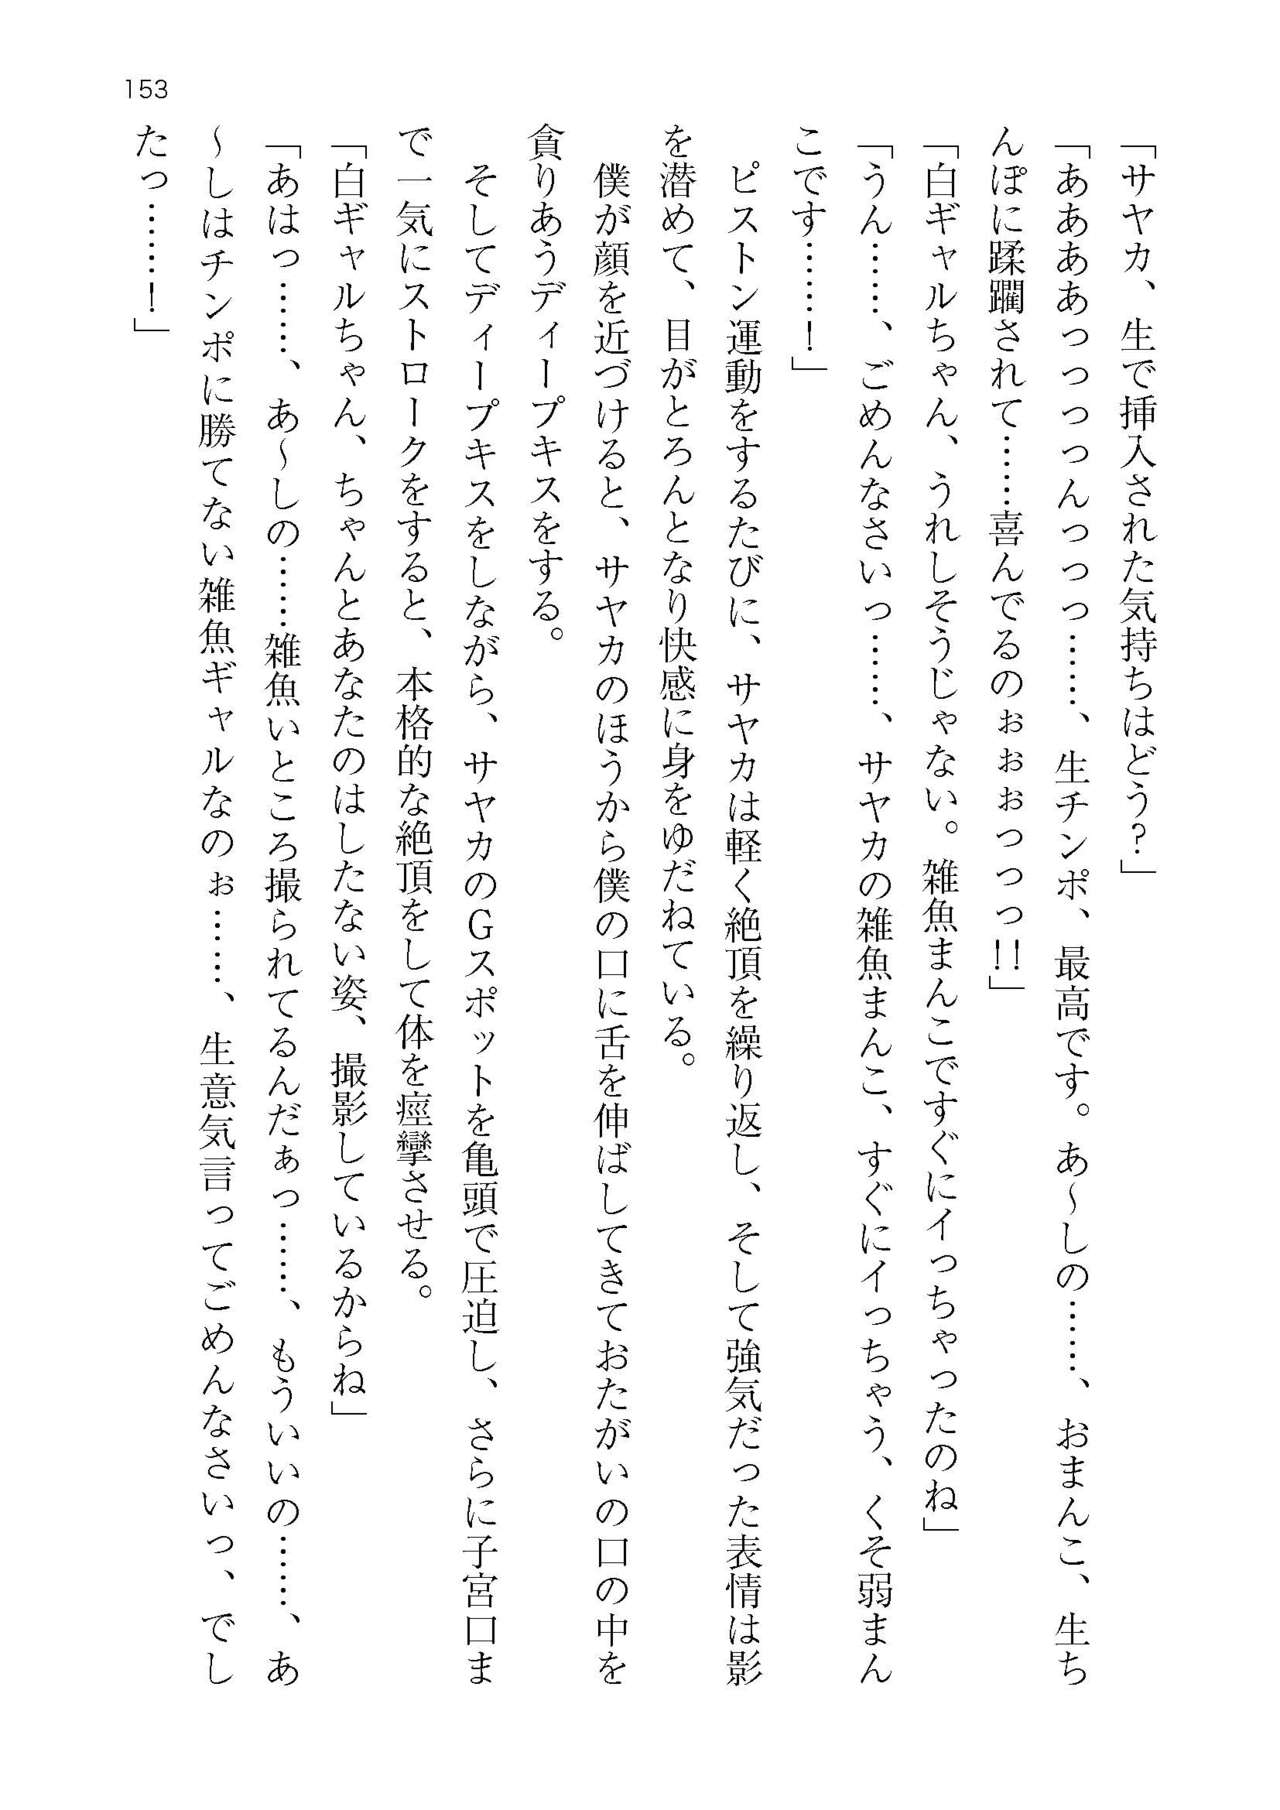 153
「サヤカ、生で挿入された気持ちはどう?」
「ああああっっっっんっっっ……、生チンポ、最高です。あ～しの……、おまんこ、生ち
んぽに蹂躙されて……喜んでるのぉぉぉっっっ!!」
「白ギャルちゃん、うれしそうじゃない。雑魚まんこですぐにイっちゃったのね」
「うん……、ごめんなさいっ……、サヤカの雑魚まんこ、すぐにイっちゃう、くそ弱まん
こです……!」
　ピストン運動をするたびに、サヤカは軽く絶頂を繰り返し、そして強気だった表情は影
を潜めて、目がとろんとなり快感に身をゆだねている。
　僕が顔を近づけると、サヤカのほうから僕の口に舌を伸ばしてきておたがいの口の中を
貪りあうディープキスをする。
　そしてディープキスをしながら、サヤカのGスポットを亀頭で圧迫し、さらに子宮口ま
で一気にストロークをすると、本格的な絶頂をして体を痙攣させる。
「白ギャルちゃん、ちゃんとあなたのはしたない姿、撮影しているからね」
「あはっ……、あ～しの……雑魚いところ撮られてるんだぁっ……、もういいの……、あ
～しはチンポに勝てない雑魚ギャルなのぉ……、生意気言ってごめんなさいっ、でし
たっ……!」